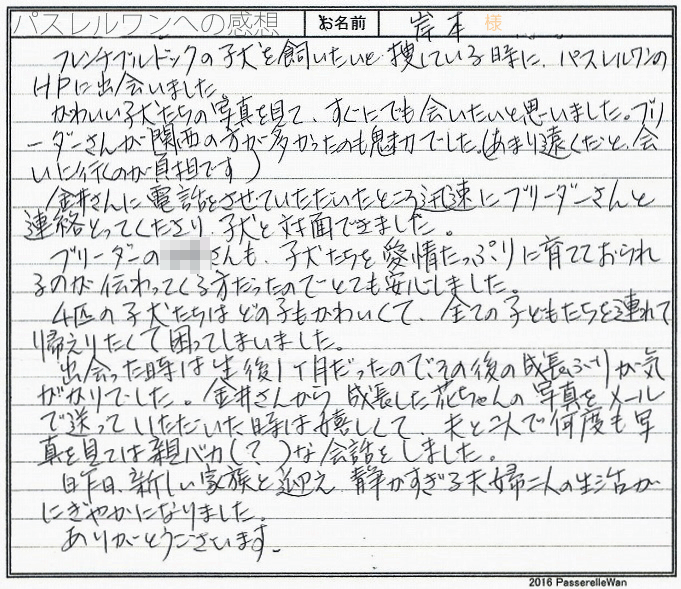 パスレルワンへの感想 お名前 岸本 様
フレンチブルドックの子犬を飼いたいと捜している時に、パスレルワンの
HPに出会いました。
かわいい子犬たちの写真を見て、すぐにでも会いたいと思いました。ブリ
ーダーさんが関西の方が多かったのも魅力でした。(あまり遠くだと、会
いに行くのが負担です)
金井さんに電話をさせていただいたところ迅速にブリーダーさんと
連絡とってくださり、子犬と対面できました。
ブリーダーの さんも、子犬たちを愛情たっぷりに育てておられ
るのが伝わってくる方だったのでとても安心しました。
4匹の子犬たちはどの子もかわいくて、全ての子どもたちを連れて
帰えりたくて困ってしまいました。
出会った時は生後1ヶ月だったので、その後の成長ぶりが気
がかりでした。金井さんから成長した花ちゃんの写真をメール
で送っていただいた時は嬉しくて、夫と二人で何度も写
真を見ては親バカ(?)な会話をしました。
昨日、新しい家族と迎え 静かすぎる夫婦二人の生活が
にぎやかになりました。
ありがとうございます。
2016 PasserelleWan